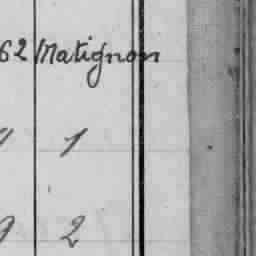 62 Matignon
1
2